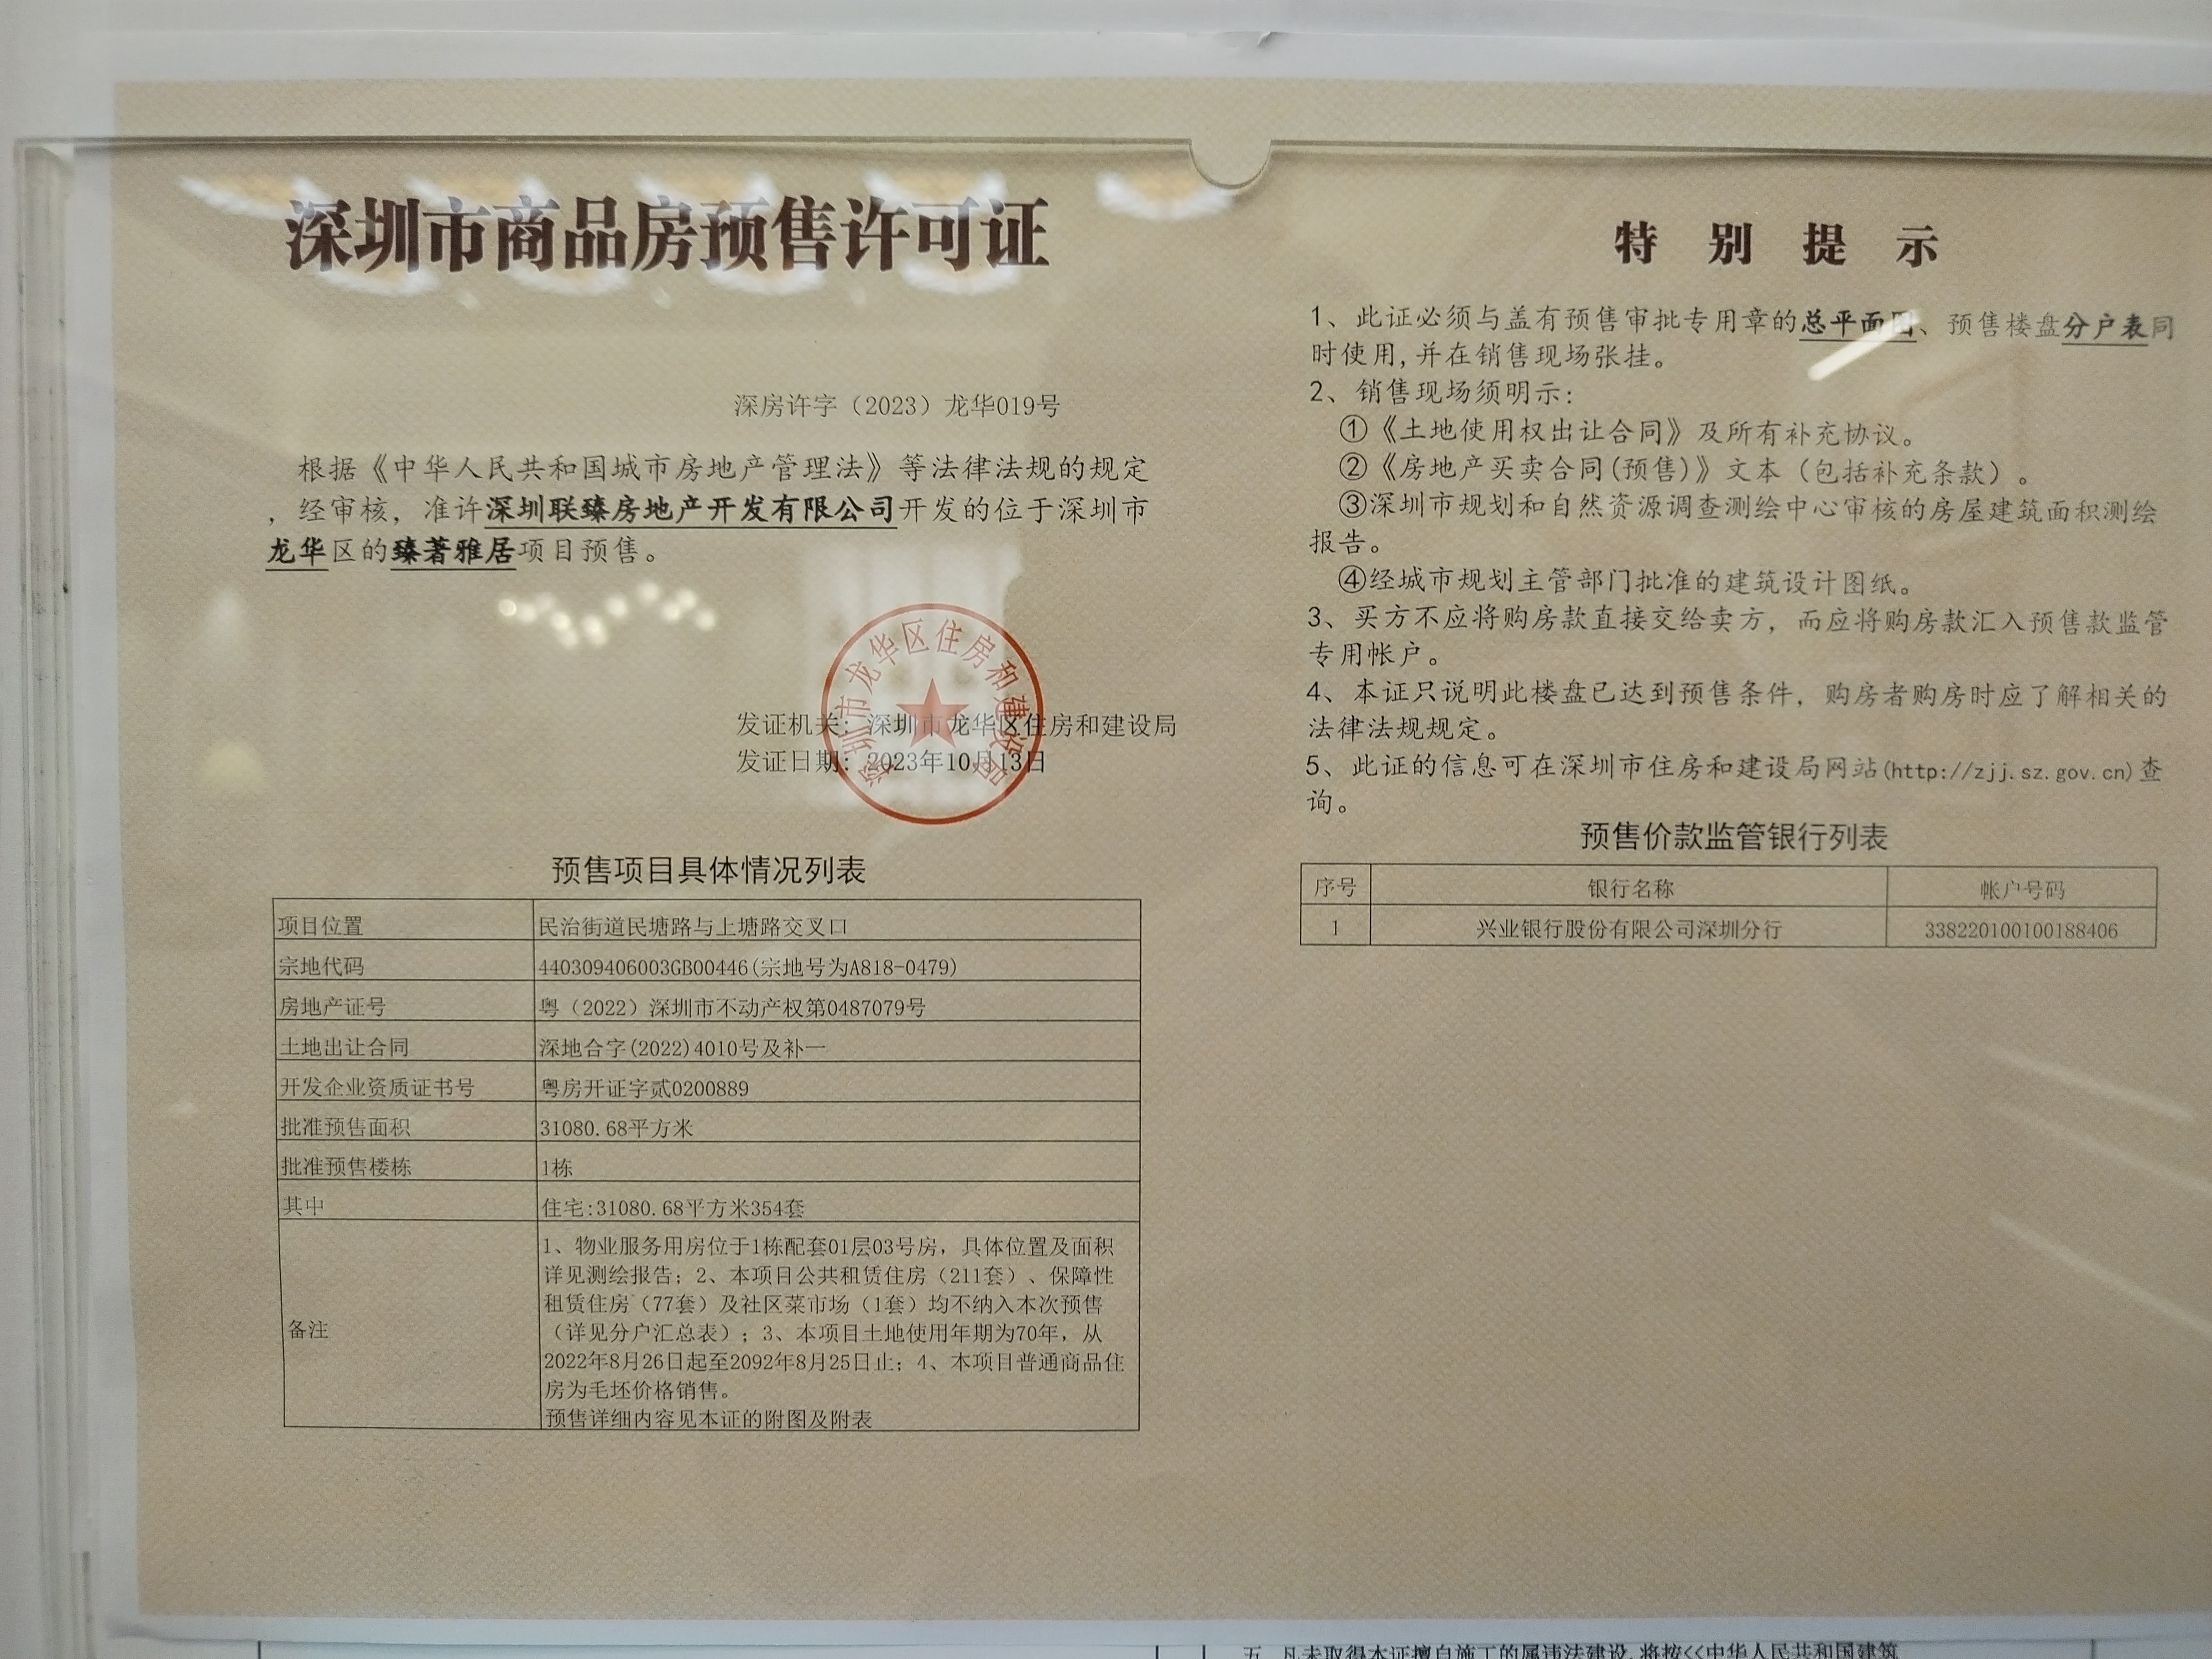 深圳市商品房预售许可证
深房许字（2023）龙华019号
根据《中华人民共和国城市房地产管理法》等法律法规的规定
，经审核，准许深圳联臻房地产开发有限公司开发的位于深圳市
龙华区的臻著雅居项目预售。
深圳市龙华区住房和建设局
发证机关：深圳市龙华区住房和建设局
发证日期：2023年10月13日
预售项目具体情况列表
项目位置 民治街道民塘路与上塘路交叉口
宗地代码 440309406003GB00446(宗地号为A818-0479)
房地产证号 粤（2022）深圳市不动产权第0487079号
土地出让合同 深地合字(2022)4010号及补一
开发企业资质证书号 粤房开证字贰0200889
批准预售面积 31080.68平方米
批准预售楼栋 1栋
其中 住宅:31080.68平方米354套
备注
1、物业服务用房位于1栋配套01层03号房，具体位置及面积
详见测绘报告；2、本项目公共租赁住房（211套）、保障性
租赁住房（77套）及社区菜市场（1套）均不纳入本次预售
（详见分户汇总表）；3、本项目土地使用年期为70年，从
2022年8月26日起至2092年8月25日止；4、本项目普通商品住
房为毛坯价格销售。
预售详细内容见本证的附图及附表
特别提示
1、此证必须与盖有预售审批专用章的总平面图、预售楼盘分户表同
时使用,并在销售现场张挂。
2、销售现场须明示：
①《土地使用权出让合同》及所有补充协议。
②《房地产买卖合同(预售)》文本（包括补充条款）。
③深圳市规划和自然资源调查测绘中心审核的房屋建筑面积测绘
报告。
④经城市规划主管部门批准的建筑设计图纸。
3、买方不应将购房款直接交给卖方，而应将购房款汇入预售款监管
专用帐户。
4、本证只说明此楼盘已达到预售条件，购房者购房时应了解相关的
法律法规规定。
5、此证的信息可在深圳市住房和建设局网站(http://zjj.sz.gov.cn)查
询。
预售价款监管银行列表
序号 银行名称 帐户号码
1 兴业银行股份有限公司深圳分行 338220100100188406
五、凡未取得本证擅自施工的属违法建设,将按<<中华人民共和国建筑